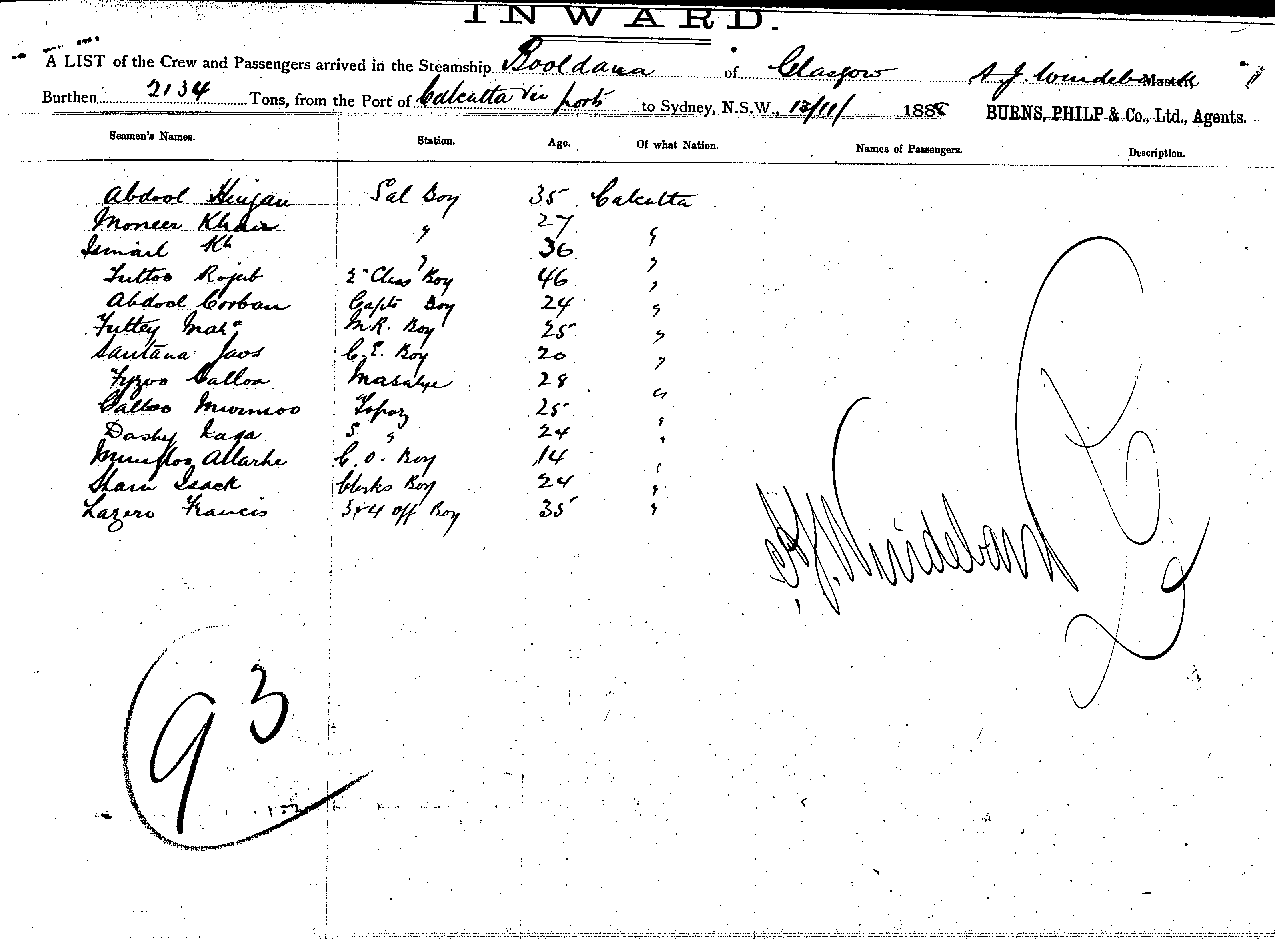 INWARD.
A LIST of the Crew and Passengers arrived in the Steamship Booldana of Glasgow A. J. Windebank Master,
Burthen 2134 Tons, from the Port of Calcutta via ports to Sydney, N.S.W., 188 BURNS, PHILP & Co., Ltd., Agents.
Seamen's Names. Station. Age. Of what Nation. Names of Passengers. Description.
Abdool Sal Boy 35 Calcutta
Moneer Khan 27 "
Ismail Kh " 36 "
Futtoo Rojub 2nd Class Boy 46 "
Abdool Corban Capts Boy 24 "
Futtey M.R. Boy 25 "
Santana C.E. Boy 20 "
Fyzoo 28 "
Topaz 25 "
24 "
C.O. Boy 14 "
Isack Clerks Boy 24 "
Lazero Francis 3 & 4 Off Boy 35 "
A. J. Windebank
93